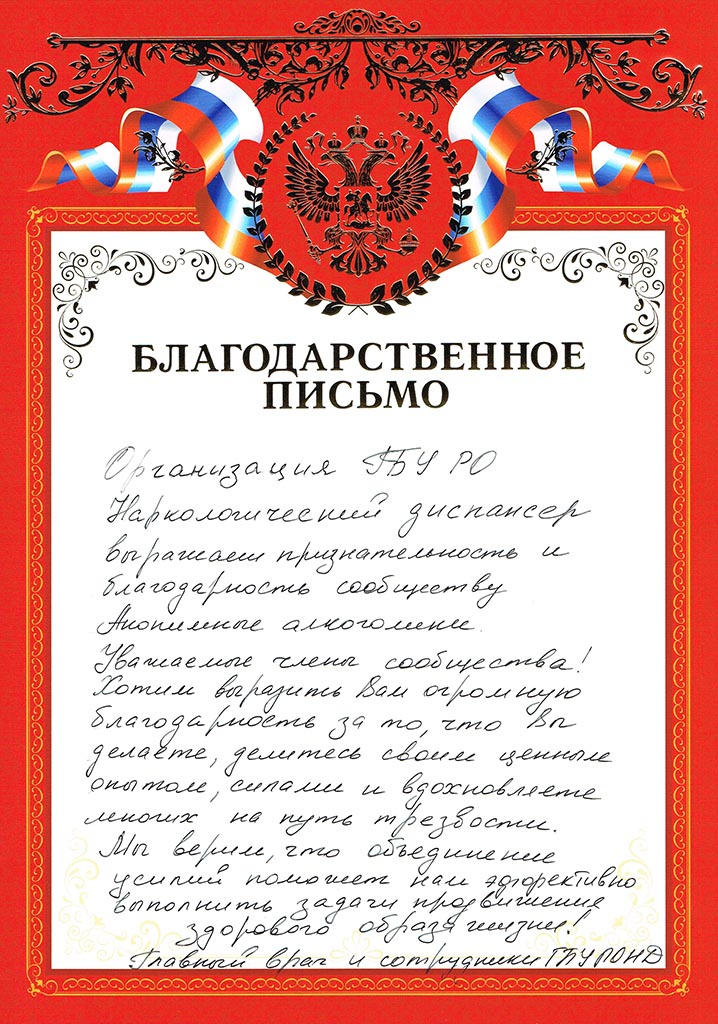 БЛАГОДАРСТВЕННОЕ
ПИСЬМО
Организация ГБУ РО
Наркологический диспансер
выражает признательность и
благодарность сообществу
Анонимные алкоголики.
Уважаемые члены сообщества!
Хотим выразить Вам огромную
благодарность за то, что Вы
делаете, делитесь своим ценным
опытом, силами и вдохновляете
многих на путь трезвости.
Мы верим, что объединение
усилий поможет нам эффективно
выполнить задачи продвижения
здорового образа жизни!
Главный врач и сотрудники ГБУ РО НД